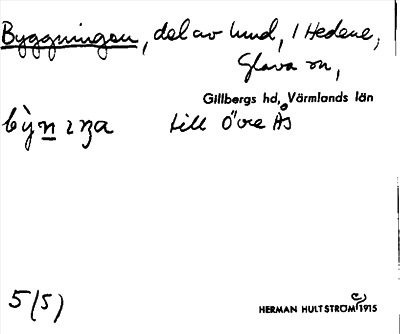 Byggningen, del av lund, i Hedene,
Glava sn,
Gillbergs hd, Värmlands län
till Övre Ås
5(5)
HERMAN HULTSTRÖM 1915